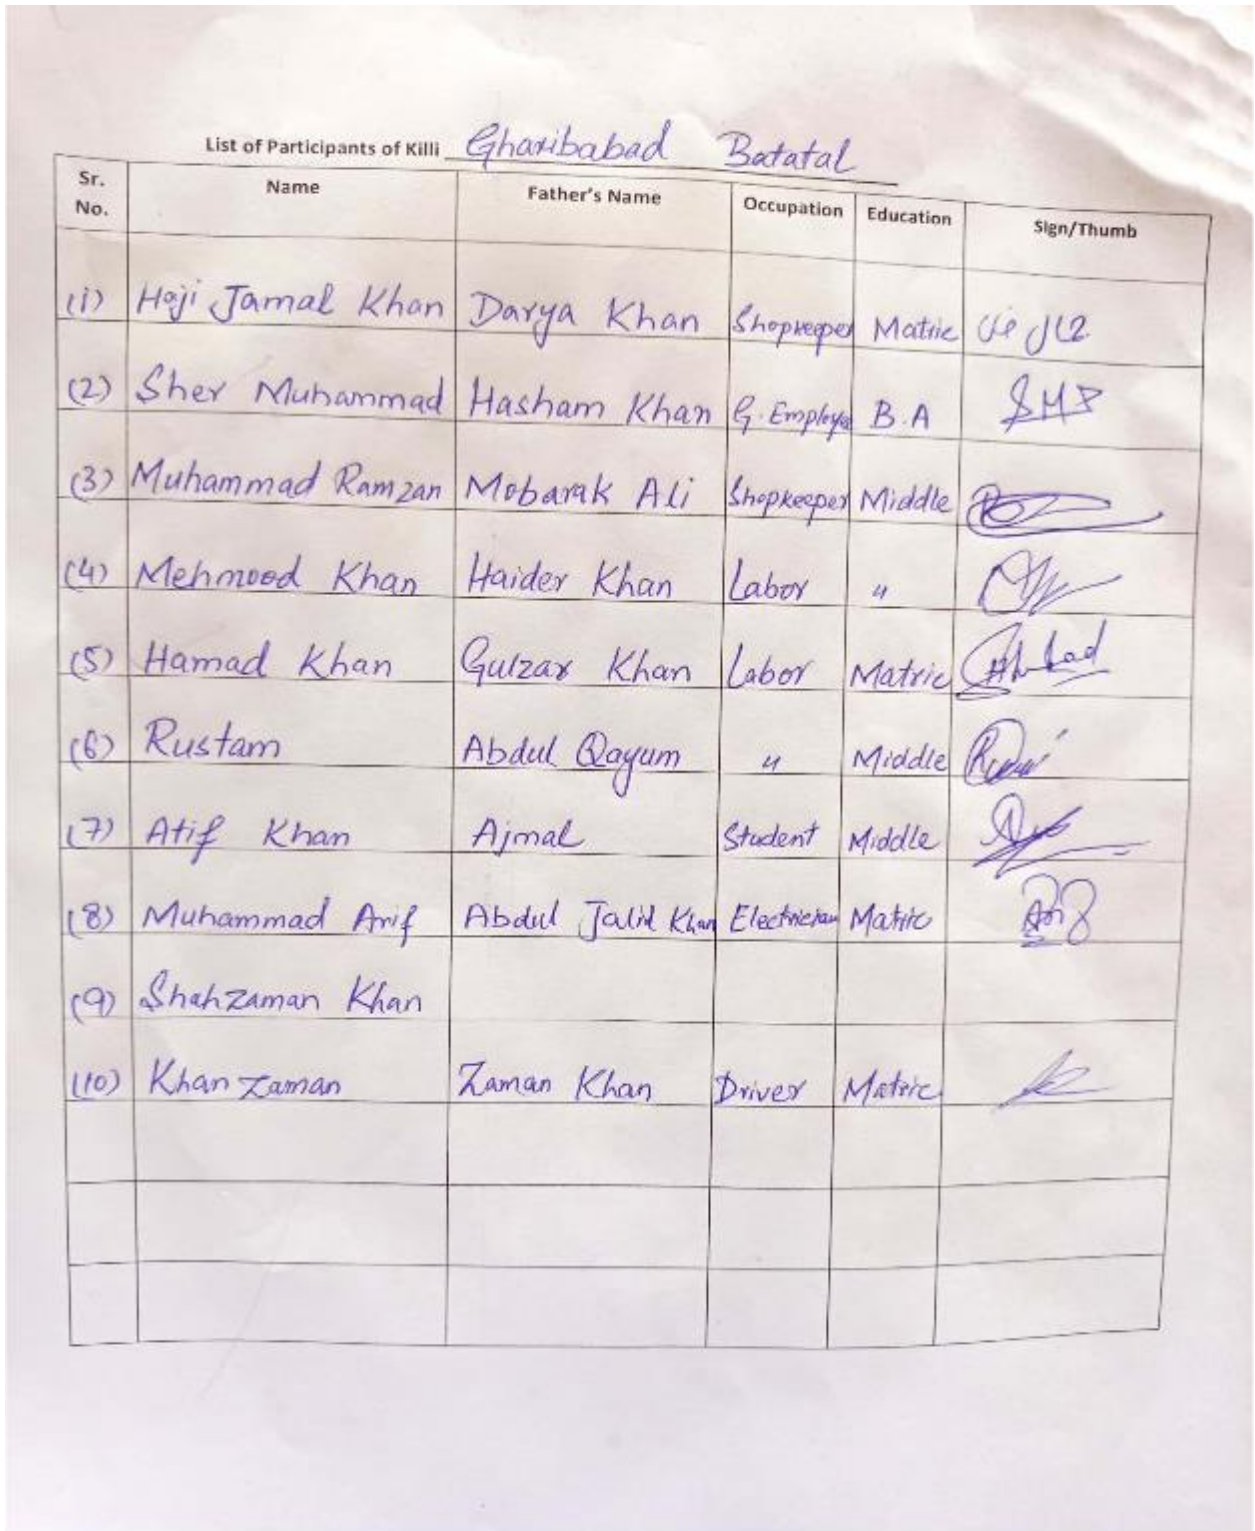 List of Participants of Killi Gharibabad Batatal
Sr. No. Name Father's Name Occupation Education Sign/Thumb
(1) Haji Jamal Khan Darya Khan Shopkeeper Matric جمال خان
(2) Sher Muhammad Hasham Khan G. Employe B.A SMJ
(3) Muhammad Ramzan Mobarak Ali Shopkeeper Middle
(4) Mehmood Khan Haider Khan Labor "
(5) Hamad Khan Gulzar Khan Labor Matric
(6) Rustam Abdul Qayum " Middle
(7) Atif Khan Ajmal Student Middle
(8) Muhammad Arif Abdul Jalil Khan Electrician Matric
(9) Shahzaman Khan
(10) Khan Zaman Zaman Khan Driver Matric